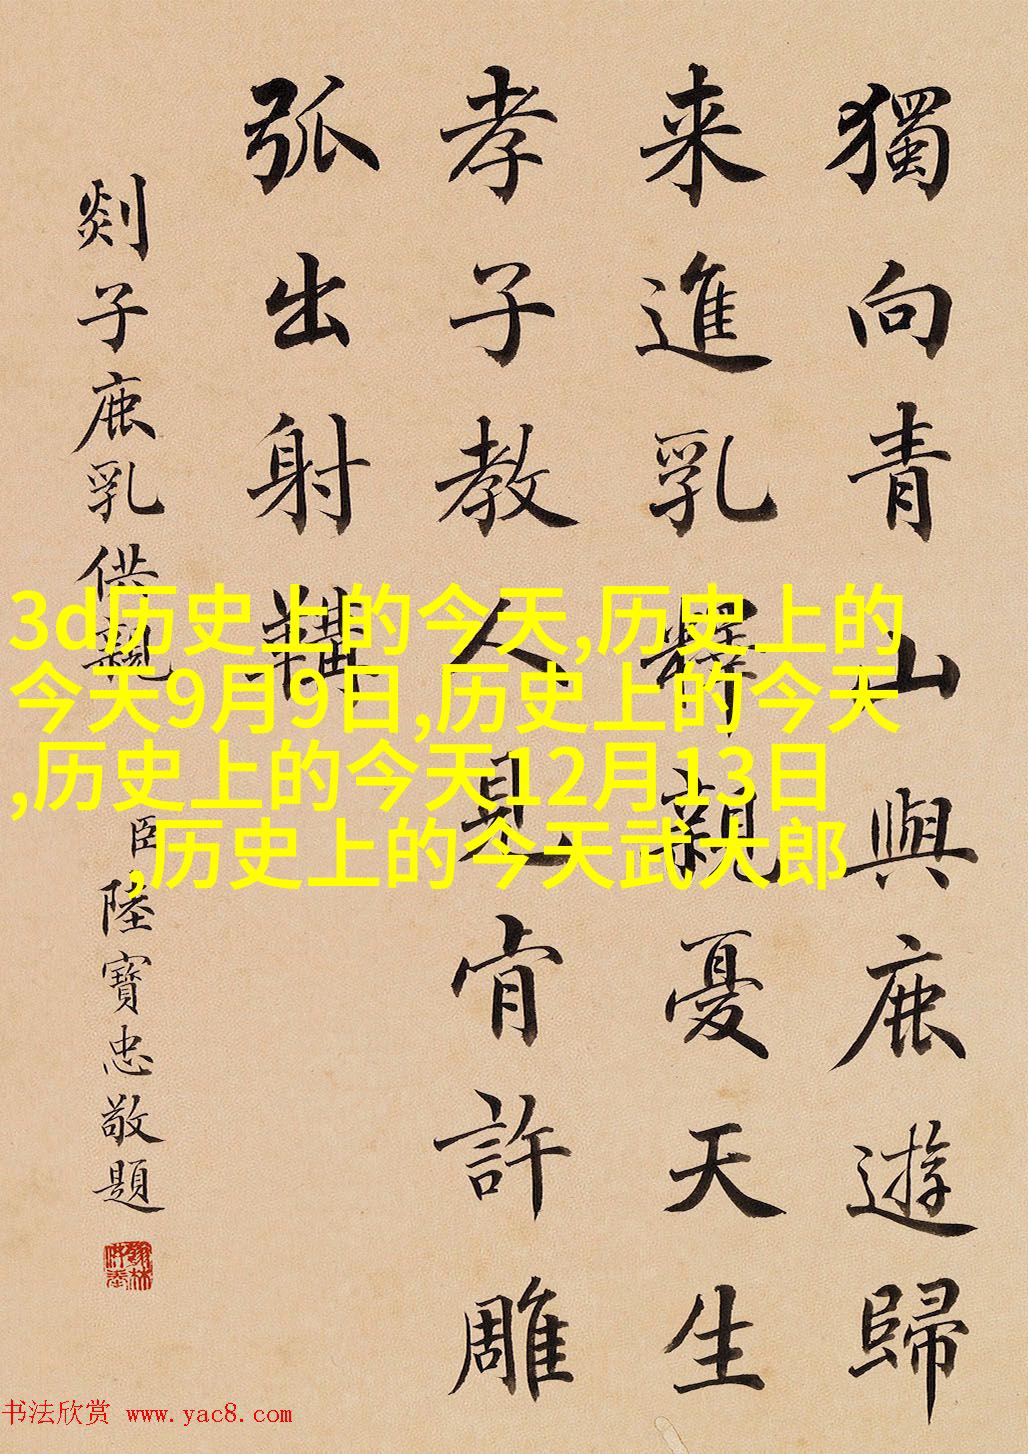 獨向青山與鹿遊歸
来進乳釋親憂天生
孝子教人見肯許雕
弧出射鞲
剡子鹿乳供親
臣陸寶忠敬題
翰林供奉
3d历史上的今天,历史上的
今天9月9日,历史上的今天
,历史上的今天12月13日
,历史上的今天武大郎
书法欣赏 www.yac8.com